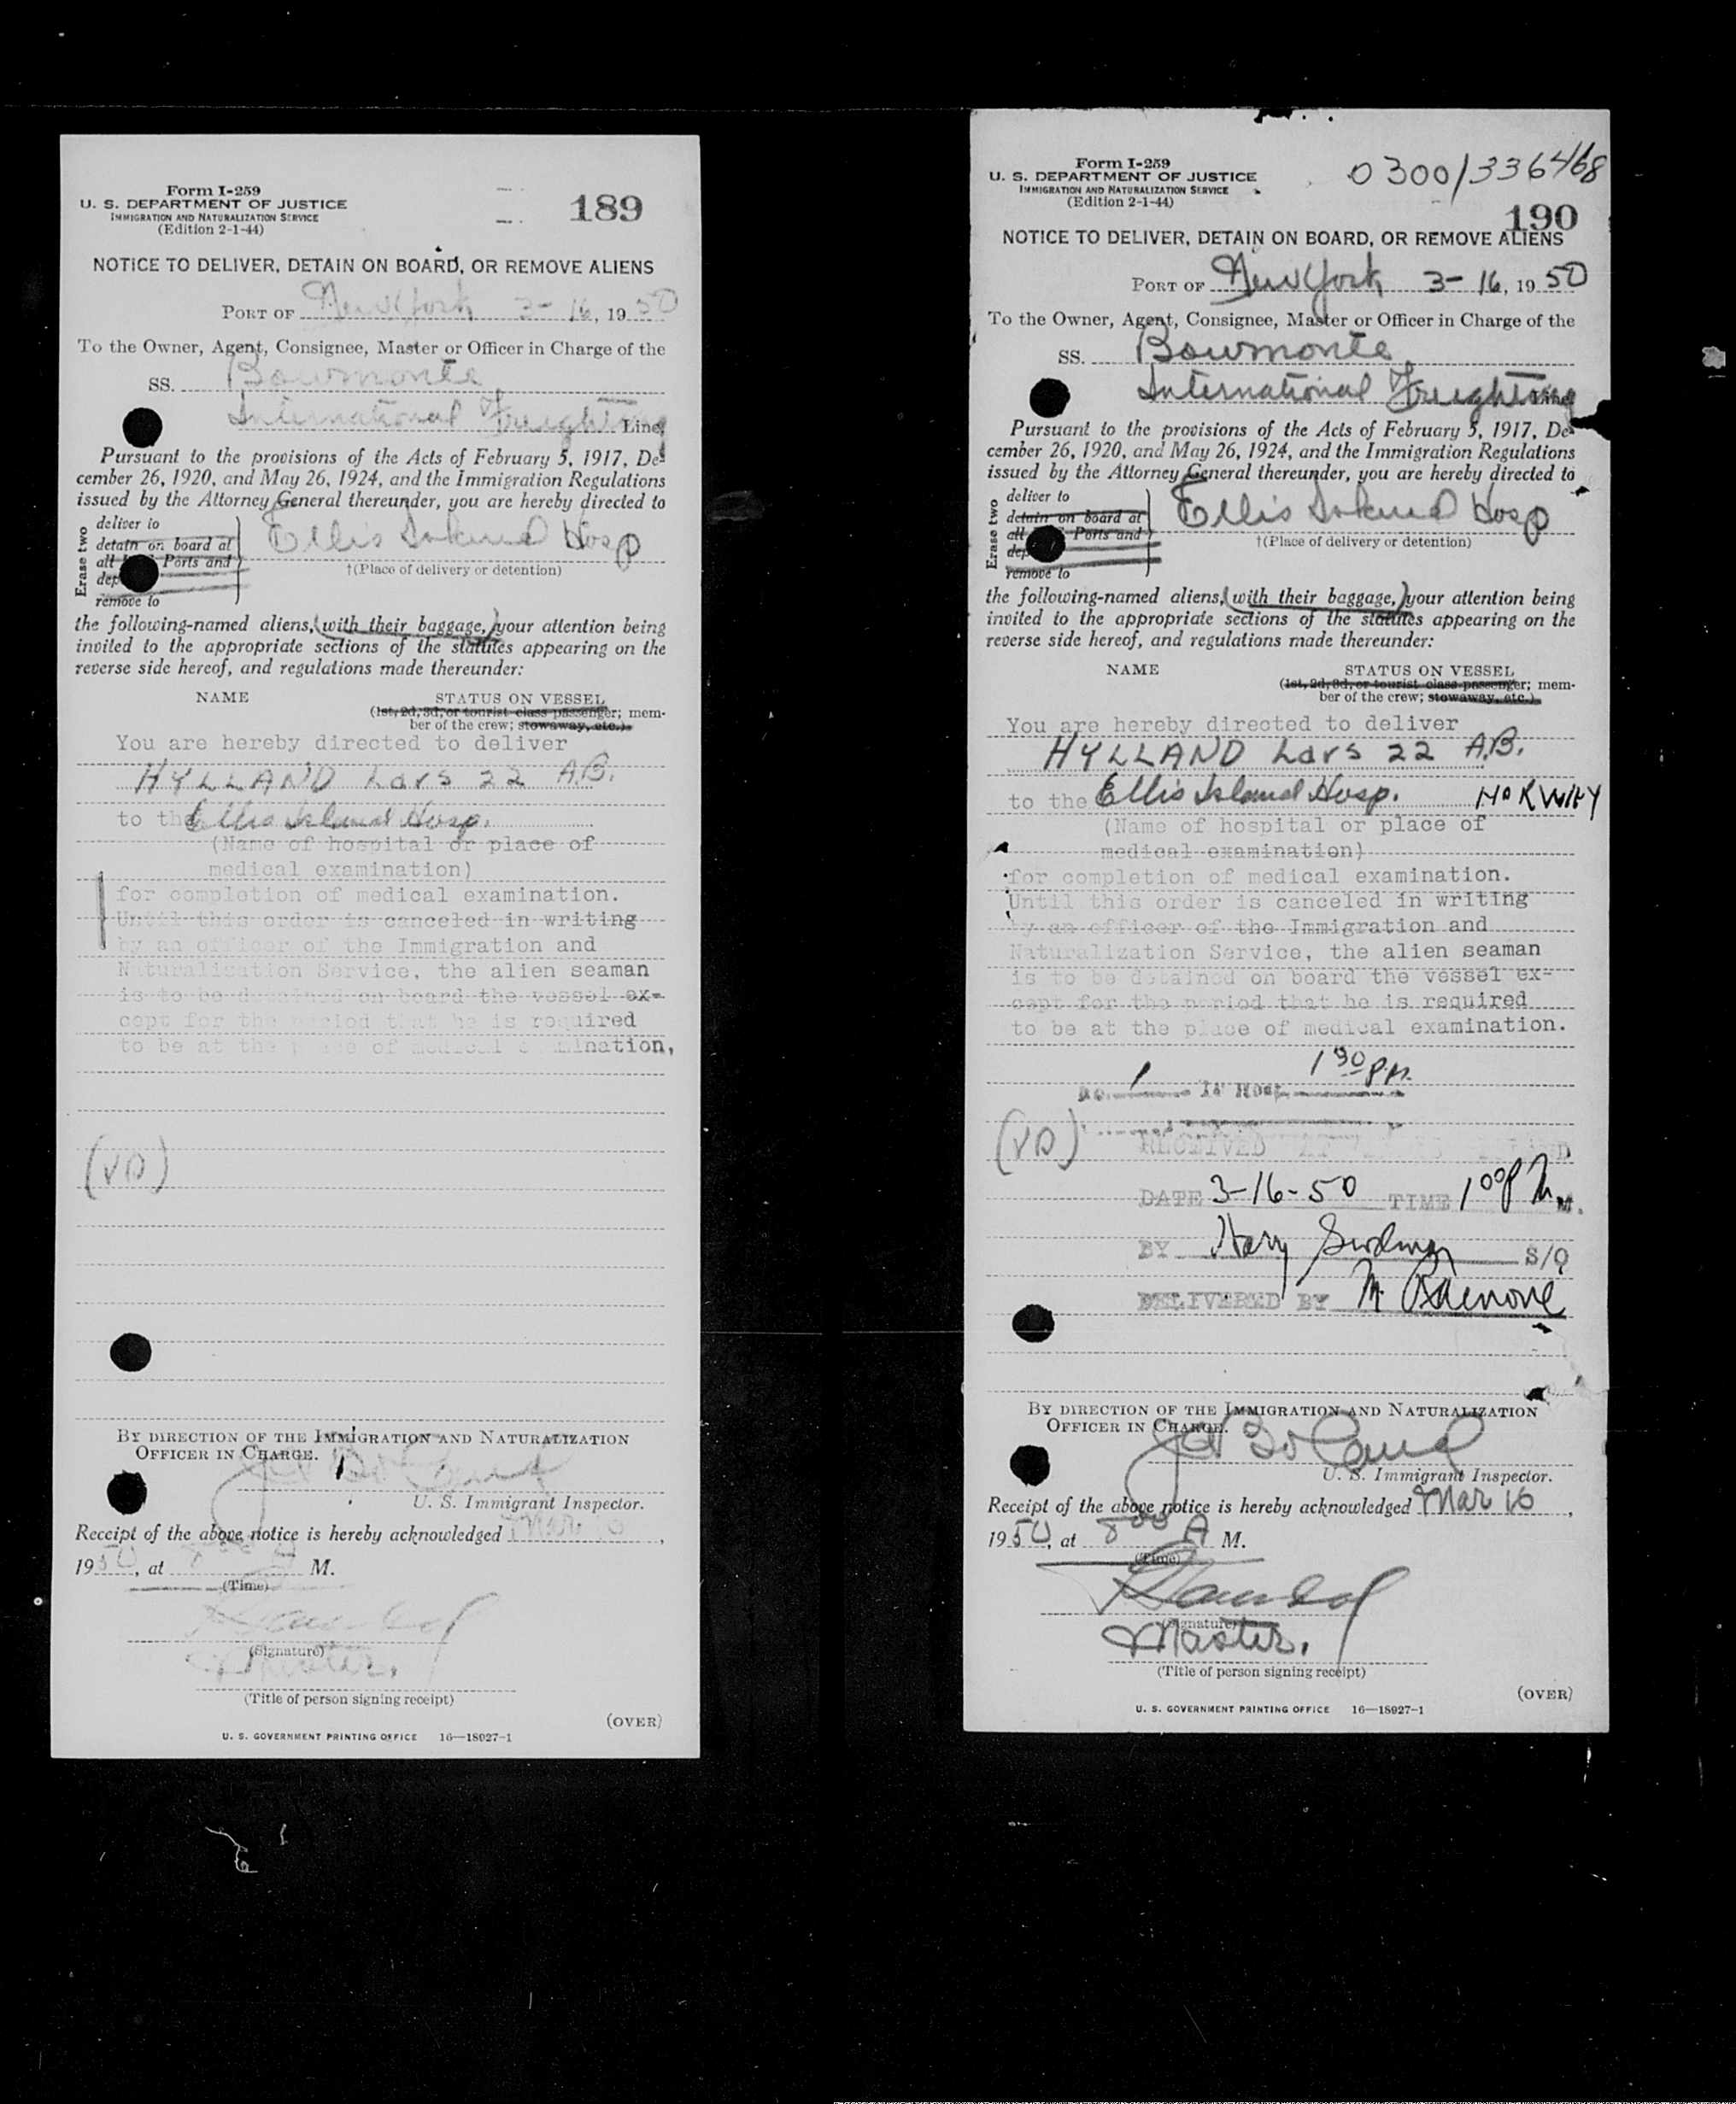 Form I-259
U. S. DEPARTMENT OF JUSTICE
IMMIGRATION AND NATURALIZATION SERVICE
(Edition 2-1-44)
189
NOTICE TO DELIVER, DETAIN ON BOARD, OR REMOVE ALIENS
PORT OF New York 3-16, 1950
To the Owner, Agent, Consignee, Master or Officer in Charge of the
SS. Bowmonte
International Freighting Line,
Pursuant to the provisions of the Acts of February 5, 1917, De-
cember 26, 1920, and May 26, 1924, and the Immigration Regulations
issued by the Attorney General thereunder, you are hereby directed to
Erase two
deliver to
detain on board at
all Ports and
dep
remove to
Ellis Island Hosp
†(Place of delivery or detention)
the following-named aliens, (with their baggage,) your attention being
invited to the appropriate sections of the statutes appearing on the
reverse side hereof, and regulations made thereunder:
NAME STATUS ON VESSEL
(1st, 2d, 3d, or tourist class passenger; mem-
ber of the crew; stowaway, etc.)
You are hereby directed to deliver
HYLLAND Lars 22 A.B.
to the Ellis Island Hosp.
(Name of hospital or place of
medical examination)
for completion of medical examination.
Until this order is canceled in writing
by an officer of the Immigration and
Naturalization Service, the alien seaman
is to be detained on board the vessel ex-
cept for the period that he is required
to be at the place of medical examination,
(VD)
BY DIRECTION OF THE IMMIGRATION AND NATURALIZATION
OFFICER IN CHARGE.
U. S. Immigrant Inspector.
Receipt of the above notice is hereby acknowledged Mar 16,
1950, at 8 00 A M.
(Time)
(Signature)
Master.
(Title of person signing receipt)
(OVER)
U. S. GOVERNMENT PRINTING OFFICE 16—18927-1
Form I-259
U. S. DEPARTMENT OF JUSTICE
IMMIGRATION AND NATURALIZATION SERVICE
(Edition 2-1-44)
0300/336468
190
NOTICE TO DELIVER, DETAIN ON BOARD, OR REMOVE ALIENS
PORT OF New York 3-16, 1950
To the Owner, Agent, Consignee, Master or Officer in Charge of the
SS. Bowmonte
International Freighting Line,
Pursuant to the provisions of the Acts of February 5, 1917, De-
cember 26, 1920, and May 26, 1924, and the Immigration Regulations
issued by the Attorney General thereunder, you are hereby directed to
Erase two
deliver to
detain on board at
all Ports and
dep
remove to
Ellis Island Hosp
†(Place of delivery or detention)
the following-named aliens, (with their baggage,) your attention being
invited to the appropriate sections of the statutes appearing on the
reverse side hereof, and regulations made thereunder:
NAME STATUS ON VESSEL
(1st, 2d, 3d, or tourist class passenger; mem-
ber of the crew; stowaway, etc.)
You are hereby directed to deliver
HYLLAND Lars 22 A.B.
to the Ellis Island Hosp.
(Name of hospital or place of
medical examination)
for completion of medical examination.
Until this order is canceled in writing
by an officer of the Immigration and
Naturalization Service, the alien seaman
is to be detained on board the vessel ex-
cept for the period that he is required
to be at the place of medical examination.
1 30 P.M.
1
(VD)
RECEIVED AT
DATE 3-16-50 TIME 1 00 P M.
BY Harry
DELIVERED BY M.
BY DIRECTION OF THE IMMIGRATION AND NATURALIZATION
OFFICER IN CHARGE.
U. S. Immigrant Inspector.
Receipt of the above notice is hereby acknowledged Mar 16,
1950, at 8 00 A M.
(Time)
(Signature)
Master.
(Title of person signing receipt)
(OVER)
U. S. GOVERNMENT PRINTING OFFICE 16—18927-1